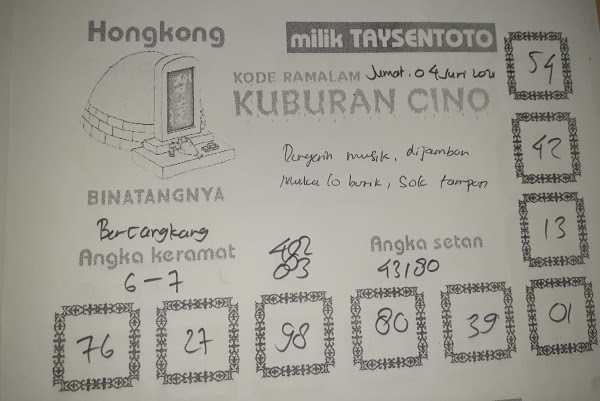 Hongkong
milik TAYSENTOTO
KODE RAMALAM Jumat, 04 Juni 2021
KUBURAN CINO
54
Dengerin musik, dijamban
Muka lo burik, Sok tampan
42
BINATANGNYA
Bercangkang
Angka keramat
6-7
402
693
Angka setan
43180
13
76
27
98
80
39
01